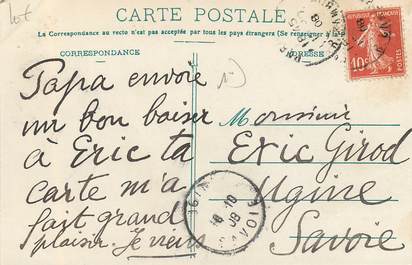 lot
CARTE POSTALE
La Correspondance au recto n'est pas acceptée par tous les pays étrangers (Se renseigner à
CORRESPONDANCE
ADRESSE
Papa envoie
un bon baiser
à Eric ta
carte m'a
fait grand
plaisir. Je viens
Monsieur
Eric Girod
Ugine
Savoie
RÉPUBLIQUE FRANÇAISE
10c